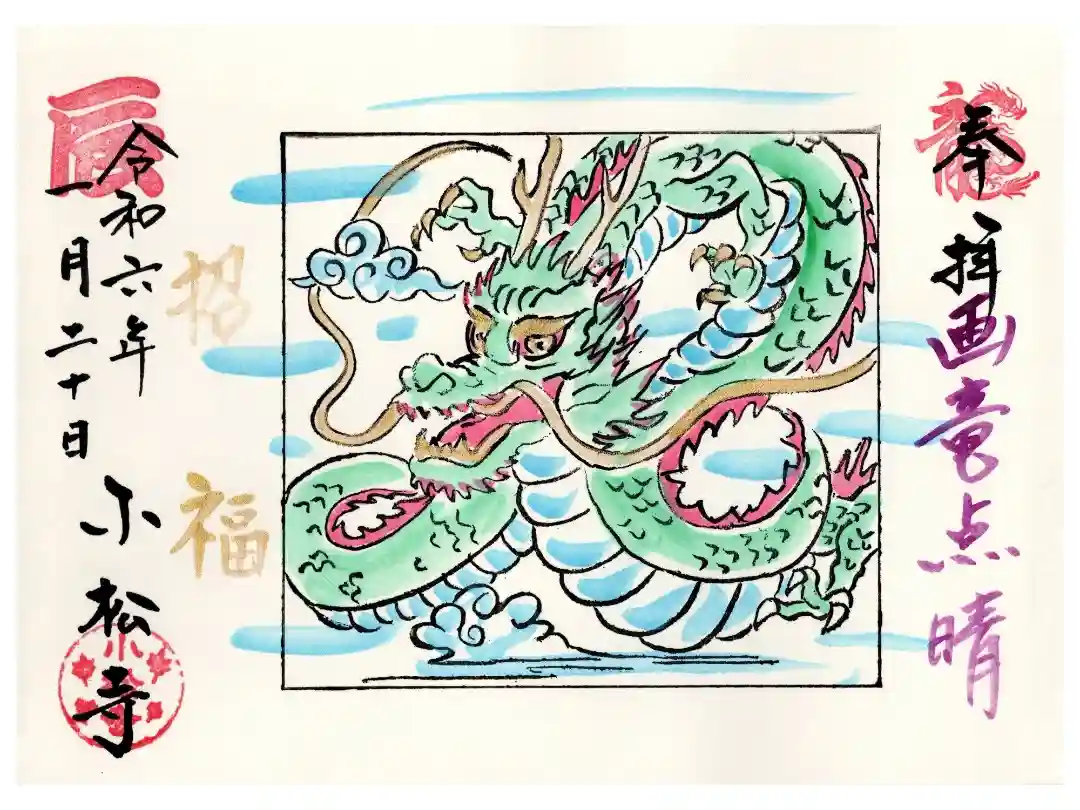 龍
奉拝
画竜点晴
招福
辰
令和六年
一月二十日
小松寺